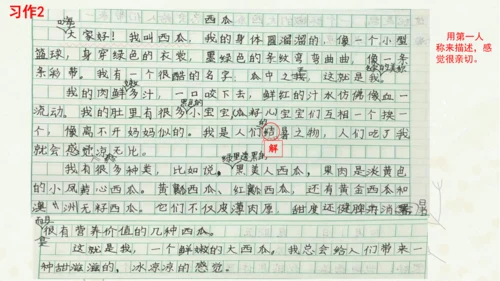 习作2
西瓜
大家好！我叫西瓜，我的身体圆溜溜的，像一个小型
篮球，身穿绿色的衣裳，墨绿色的条纹弯弯曲曲，像一条
条彩带。我有一个很酷的名字，瓜中之，这就是我。
我的肉鲜多汁，一口咬下去，鲜红的汁水仿佛像血一
流动。我的肚里有很多小宝宝，宝宝们互相一个挨一
个，像离不开妈妈似的。我是人们的解暑之物，人们吃了我
就会感觉无比。
我有很多种类，比如说，黑美人西瓜，果肉是淡黄色
的小凤西瓜。黄瓤西瓜、红瓤西瓜，还有黄金西瓜和
澳洲无籽西瓜。它们不仅皮薄肉厚，甜度还健脾来消
很有营养价值的几种西瓜。
这就是我，一个鲜嫩的大西瓜，我总会给人们带来一
种甜滋滋的，冰凉凉的感觉。
解
用第一人
称来描述，感
觉很亲切。